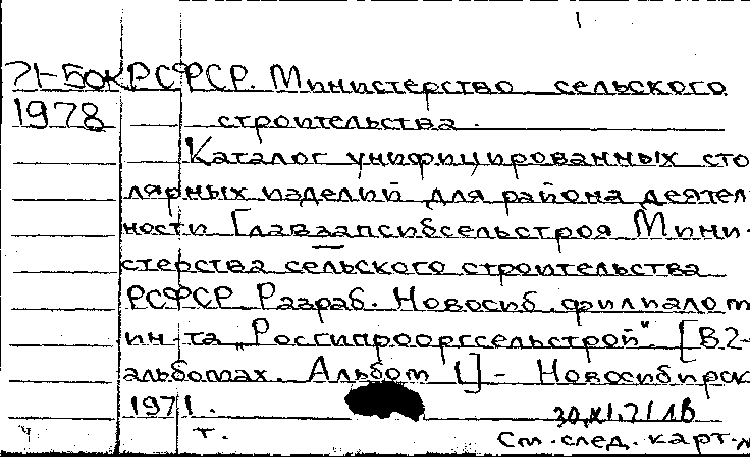 1
71-50к РСФСР. Министерство сельского
1978 строительства.
Каталог унифицированных сто
лярных изделий для района деятел
ности Главзапсибсельстроя Мини-
стерства сельского строительства
РСФСР. Разраб. Новосиб. филиалом
ин-та „Росгипрооргсельстрой". [В 2-
альбомах. Альбом 1] - Новосибирск
1971.
30.XI.71 ЛВ
ч т. См. след. карт.